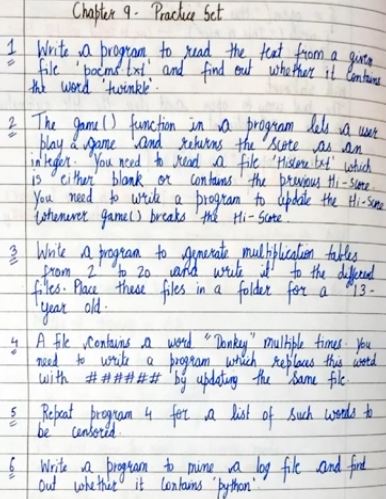 Chapter 9 - Practice Set
1 Write a program to read the text from a given
file 'poems.txt' and find out whether it contains
the word 'twinkle'.
2 The game() function in a program lets a user
play a game and returns the score as an
integer. You need to read a file 'Hiscore.txt' which
is either blank or contains the previous Hi-Score.
You need to write a program to update the Hi-Score
whenever game() breaks the Hi-Score.
3 Write a program to generate multiplication tables
from 2 to 20 and write it to the different
files. Place these files in a folder for a 13-
year old.
4 A file contains a word "Donkey" multiple times. You
need to write a program which replaces this word
with ###### by updating the same file.
5 Repeat program 4 for a list of such words to
be censored.
6 Write a program to mine a log file and find
out whether it contains 'python'.